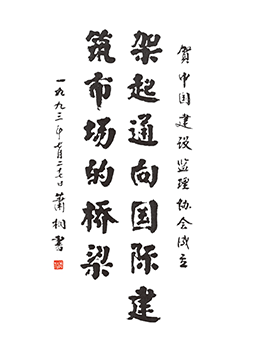 賀中国建设监理协会成立
架起通向国际建
筑市场的桥梁
一九九三年七月二十七日 蕭桐書